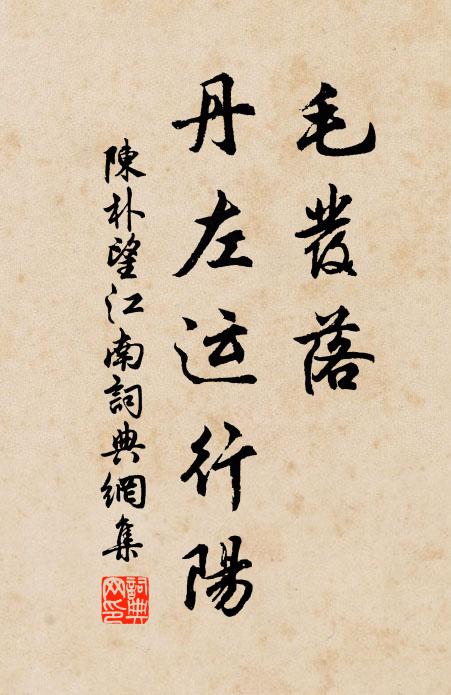 毛发落
丹左运行陽
陳朴望江南詞典網集
詞典网印